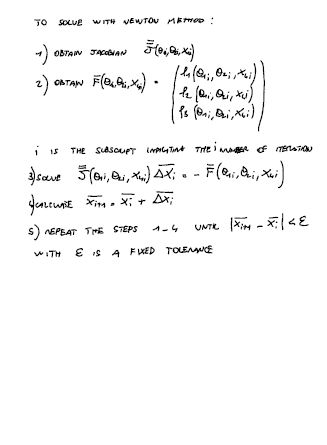 TO SOLVE WITH NEWTON METHOD :
1) OBTAIN JACOBIAN J̿(θ₁ᵢ,θ₂ᵢ,X₄ᵢ)
2) OBTAIN F̅(θ₁ᵢ,θ₂ᵢ,X₄ᵢ) = ( f₁(θ₁ᵢ,θ₂ᵢ,X₄ᵢ)
f₂(θ₁ᵢ,θ₂ᵢ,X₄ᵢ)
f₃(θ₁ᵢ,θ₂ᵢ,X₄ᵢ) )
i IS THE SUBSCRIPT INDICATING THE NUMBER OF ITERATION
3) SOLVE J̿(θ₁ᵢ,θ₂ᵢ,X₄ᵢ) ΔX̅ᵢ = - F̅(θ₁ᵢ,θ₂ᵢ,X₄ᵢ)
4) CALCULATE X̅ᵢ₊₁ = X̅ᵢ + ΔX̅ᵢ
5) REPEAT THE STEPS 1-4 UNTIL |X̅ᵢ₊₁ - X̅ᵢ| < ε
WITH ε IS A FIXED TOLERANCE